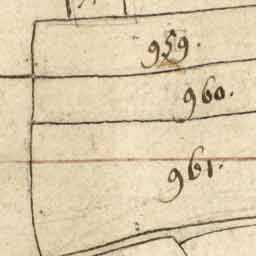 959.
960.
961.